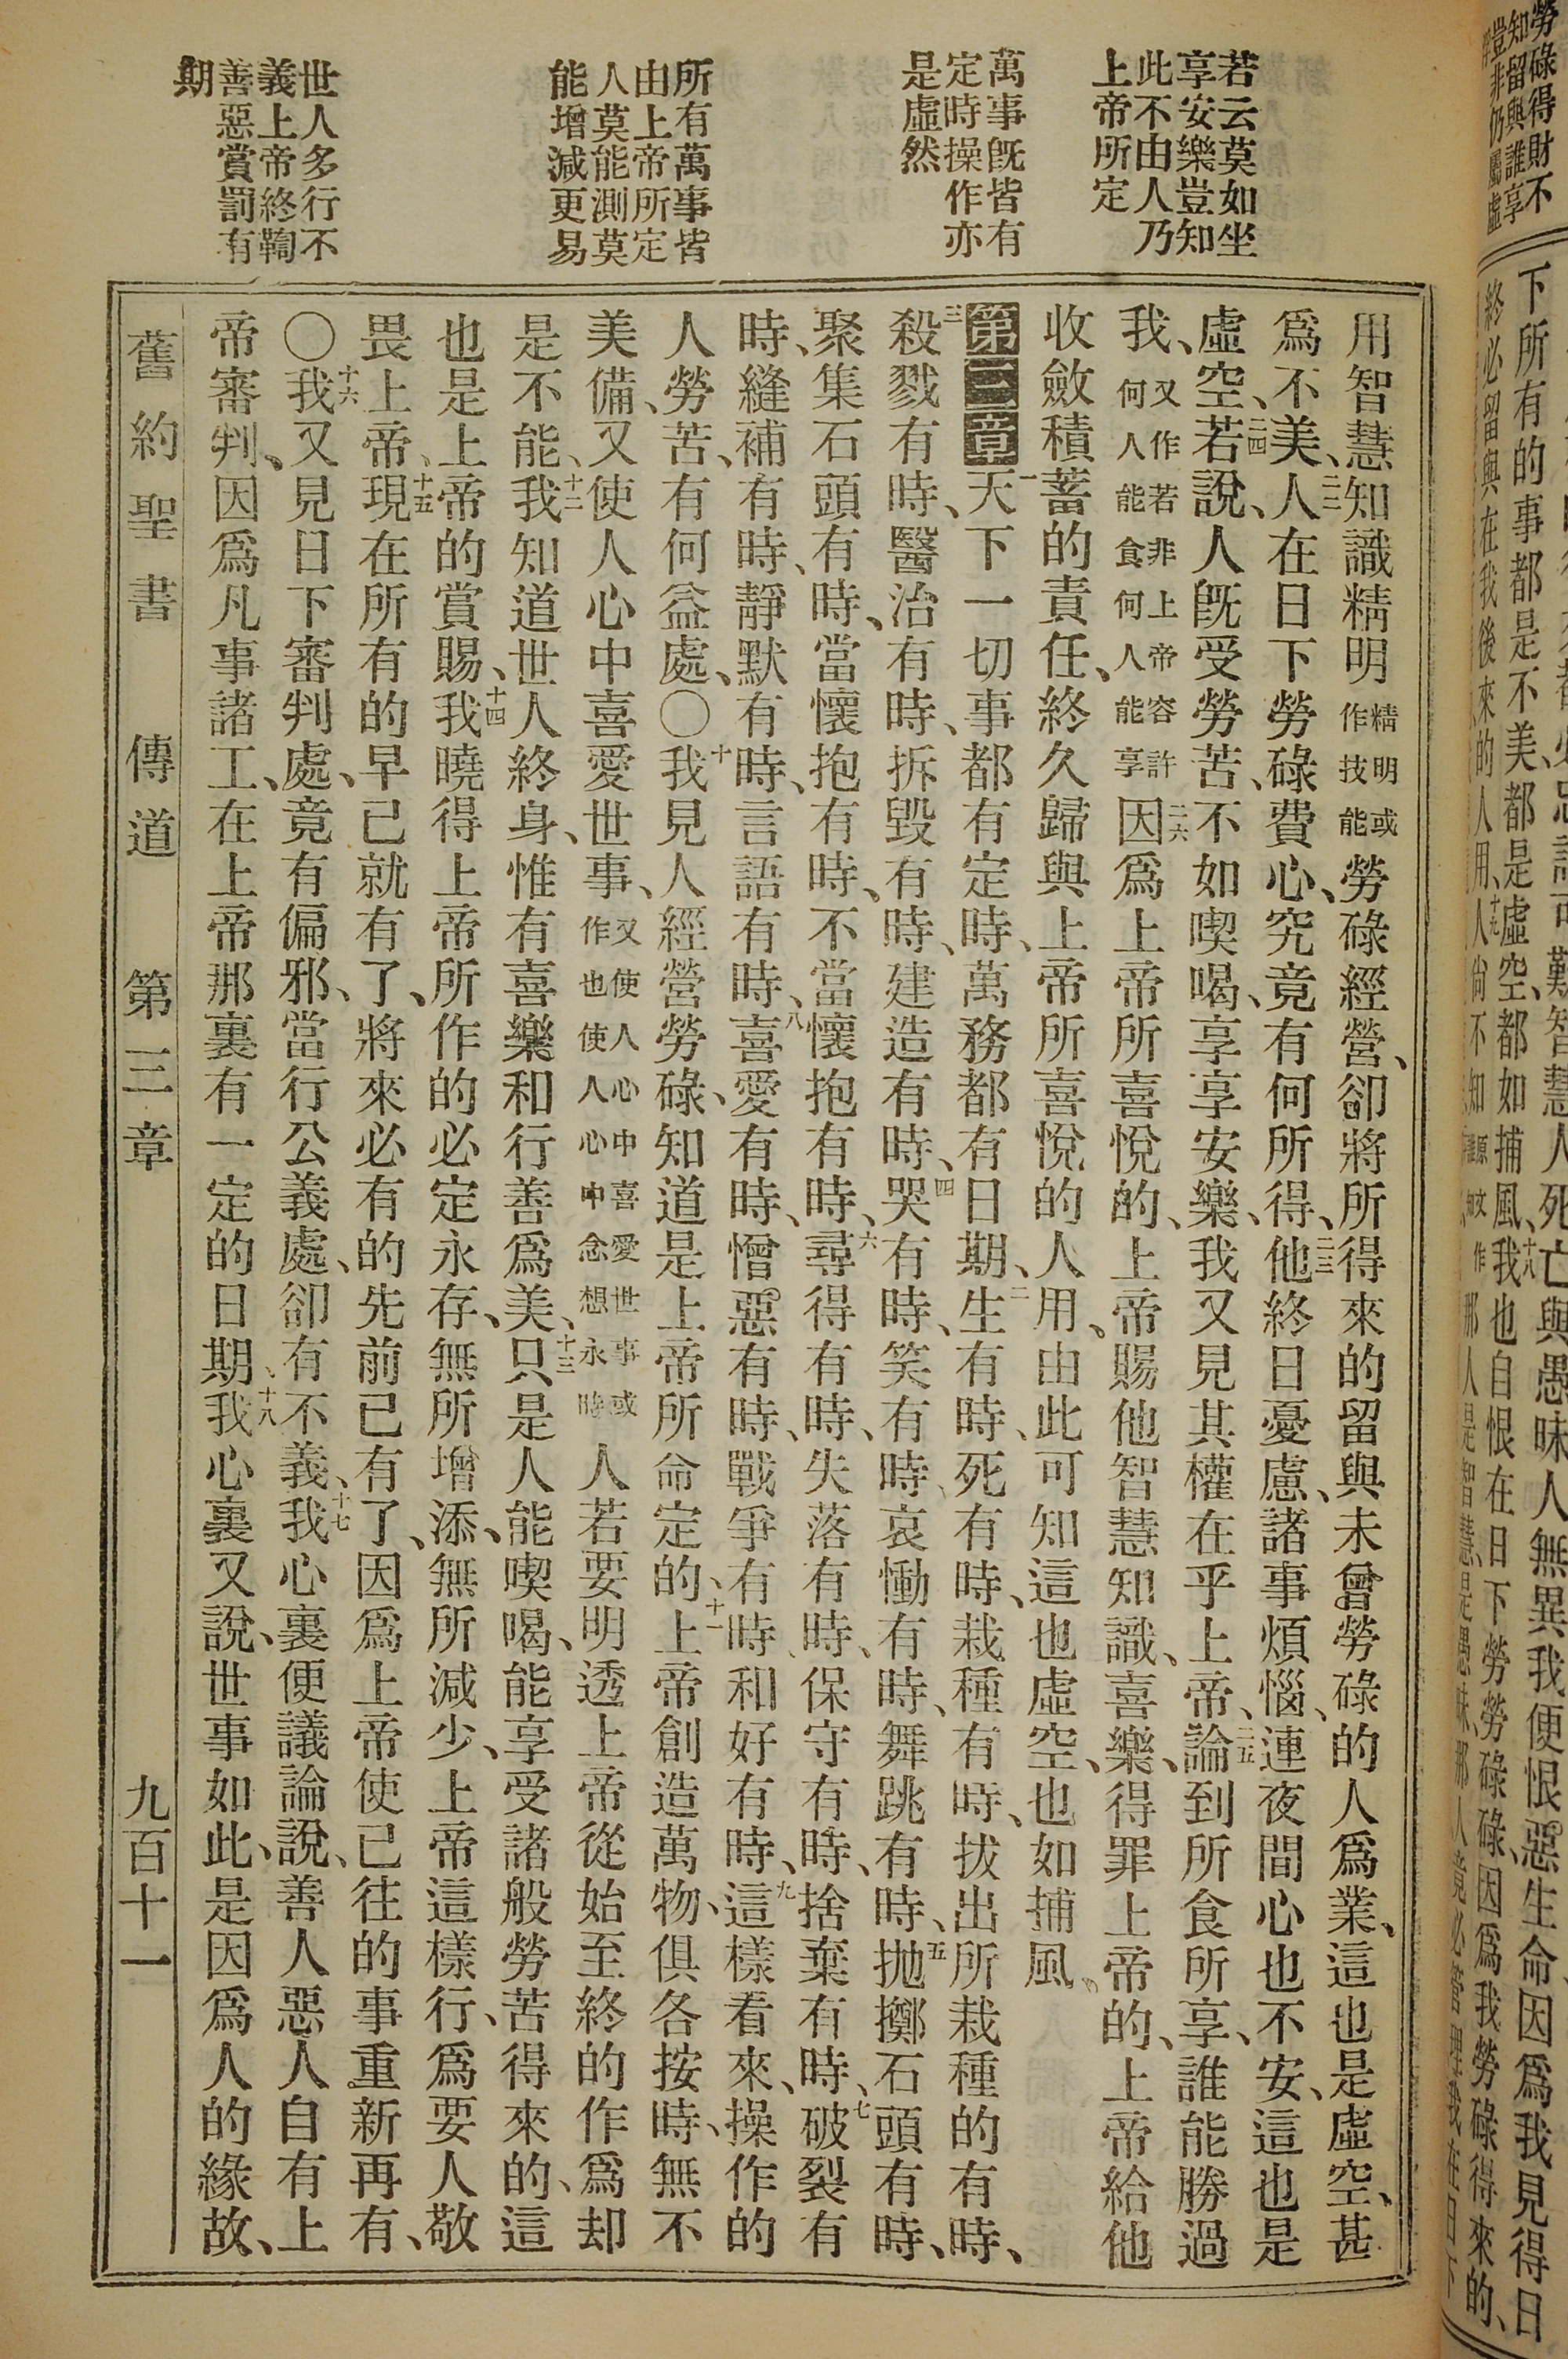 若云莫如坐
享安樂豈知
此不由人乃
上帝所定
萬事旣皆有
定時操作亦
是虛然
所有萬事皆
由上帝所定
人莫能測莫
能增減更易
世人多行不
義上帝終鞫
善惡賞罰有
期
用智慧知識精明精明或作技能勞碌經營、卻將所得來的留與未曾勞碌的人爲業、這也是虛空、甚
爲不美、二二人在日下勞碌費心、究竟有何所得、二三他終日憂慮、諸事煩惱、連夜間心也不安、這也是
虛空、二四若說、人旣受勞苦、不如喫喝、享享安樂、我又見其權在乎上帝、二五論到所食所享、誰能勝過
我、又作若非上帝容許何人能食何人能享二六因爲上帝所喜悅的、上帝賜他智慧知識、喜樂、得罪上帝的、上帝給他
收斂積蓄的責任、終久歸與上帝所喜悅的人用、由此可知這也虛空、也如捕風、
第三章一天下一切事都有定時、萬務都有日期、二生有時、死有時、栽種有時、拔出所栽種的有時、
三殺戮有時、醫治有時、拆毀有時、建造有時、四哭有時、笑有時、哀慟有時、舞跳有時、五拋擲石頭有時、
聚集石頭有時、當懷抱有時、不當懷抱有時、六尋得有時、失落有時、保守有時、捨棄有時、七破裂有
時、縫補有時、靜默有時、言語有時、八喜愛有時、憎惡有時、戰爭有時、和好有時、九這樣看來、操作的
人勞苦、有何益處、〇十我見人經營勞碌、知道是上帝所命定的、十一上帝創造萬物、俱各按時、無不
美備、又使人心中喜愛世事、又使人心中喜愛世事或作也使人心中念想永時人若要明透上帝從始至終的作爲却
是不能、十二我知道世人終身、惟有喜樂和行善爲美、十三只是人能喫喝、能享受諸般勞苦得來的、這
也是上帝的賞賜、十四我曉得上帝所作的必定永存、無所增添、無所減少、上帝這樣行、爲要人敬
畏上帝、十五現在所有的早已就有了、將來必有的先前已有了、因爲上帝使已往的事重新再有、
〇十六我又見日下審判處、竟有偏邪、當行公義處、卻有不義、十七我心裏便議論說、善人惡人自有上
帝審判、因爲凡事諸工、在上帝那裏有一定的日期、十八我心裏又說、世事如此、是因爲人的緣故、
舊約聖書　傳道　第三章　九百十一